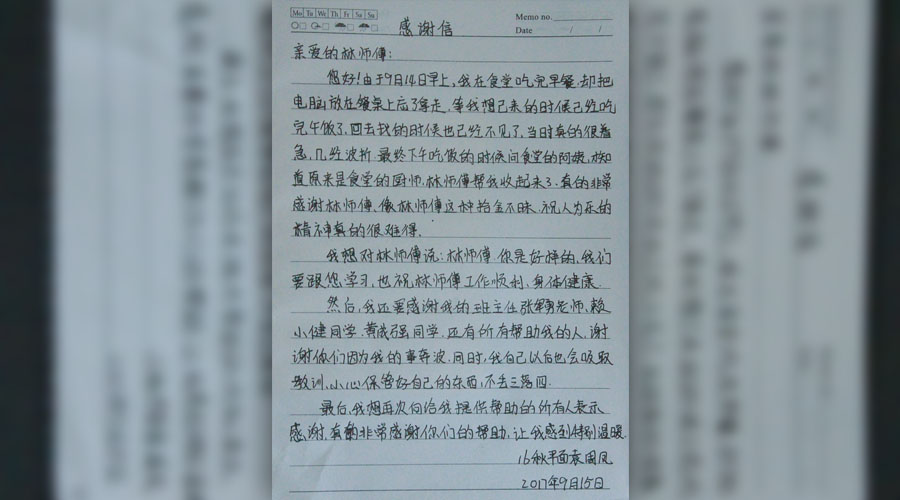 Mo Tu We Th Fr Sa Su
Memo no.
Date / /
感谢信
亲爱的林师傅:
您好!由于9月14日早上,我在食堂吃完早餐,却把
电脑放在餐桌上忘了拿走,等我想起来的时候已经吃
完午饭了,回去找的时候也已经不见了,当时真的很着
急,几经波折,最终下午吃饭的时候问食堂的阿姨,才知
道原来是食堂的厨师,林师傅帮我收起来了.真的非常
感谢林师傅、像林师傅这种拾金不昧、助人为乐的
精神真的很难得.
我想对林师傅说:林师傅,你是好样的,我们
要跟您学习,也祝林师傅工作顺利、身体健康
然后,我还要感谢我的班主任张军勇老师、赖
小健同学、黄成强同学,还有所有帮助我的人,谢
谢你们因为我的事奔波.同时,我自己以后也会吸取
教训,小心保管好自己的东西,不丢三落四.
最后,我想再次向给我提供帮助的所有人表示
感谢,真的非常感谢你们的帮助,让我感到特别温暖
16秋平面袁国凤
2017年9月15日